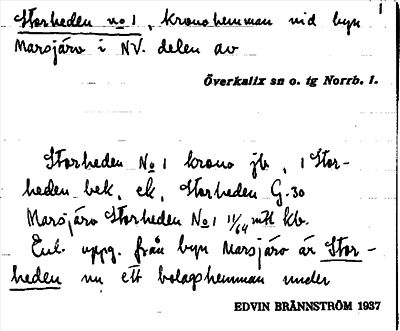 1
Storheden no 1, kronohemman vid byn
Marsjärv i NV. delen av
Överkalix sn o. tg Norrb. l.
Storheden No 1 krono jb, 1 Stor-
heden bek, ek, Storheden G.30
Marsjärv Storheden No 1 11/64 mtl kb.
Enl. uppg. från byn Marsjärv är Stor-
heden nu ett bolagshemman under
EDVIN BRÄNNSTRÖM 1937